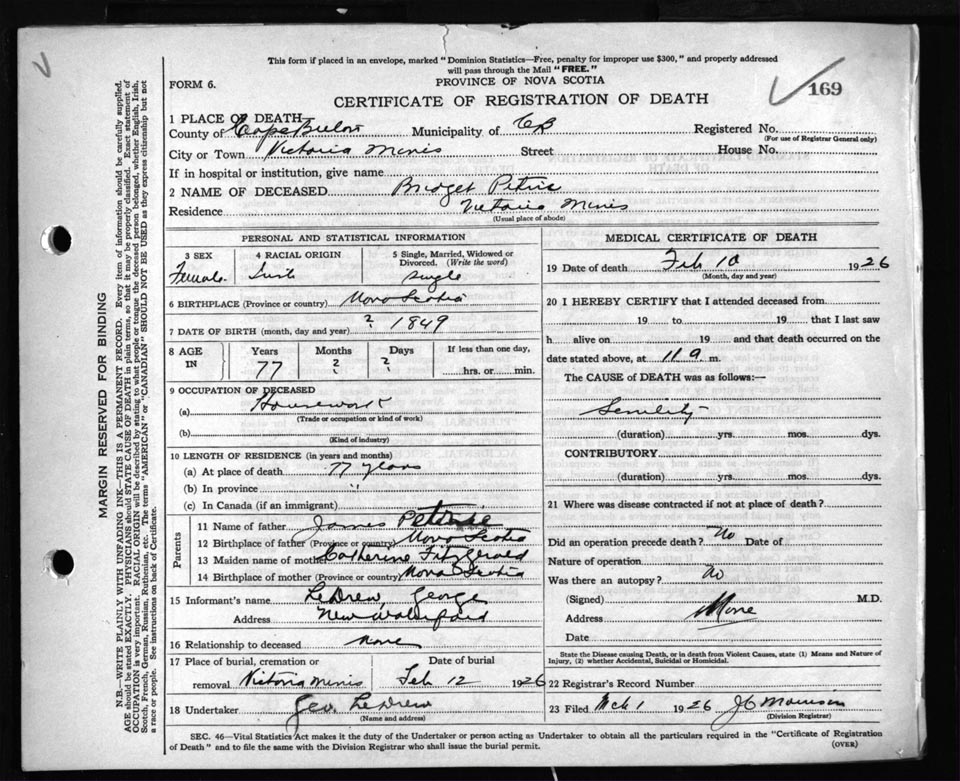 This form if placed in an envelope, marked "Dominion Statistics—Free, penalty for improper use $300," and properly addressed
will pass through the Mail "FREE."
FORM 6.
PROVINCE OF NOVA SCOTIA
169
CERTIFICATE OF REGISTRATION OF DEATH
1 PLACE OF DEATH
County of Cape Breton Municipality of CB Registered No.
(For use of Registrar General only)
City or Town Victoria Mines Street House No.
If in hospital or institution, give name
2 NAME OF DECEASED Bridget Petrie
Residence Victoria Mines
(Usual place of abode)
PERSONAL AND STATISTICAL INFORMATION
3 SEX 4 RACIAL ORIGIN 5 Single, Married, Widowed or Divorced. (Write the word)
Female single
6 BIRTHPLACE (Province or country) Nova Scotia
7 DATE OF BIRTH (month, day and year) ? 1849
8 AGE IN Years Months Days If less than one day,
77 ? ? hrs. or min.
9 OCCUPATION OF DECEASED
(a) Housework
(Trade or occupation or kind of work)
(b)
(Kind of industry)
10 LENGTH OF RESIDENCE (in years and months)
(a) At place of death 77 years
(b) In province "
(c) In Canada (if an immigrant)
Parents
11 Name of father James Petrie
12 Birthplace of father (Province or country) Nova Scotia
13 Maiden name of mother Catherine Fitzgerald
14 Birthplace of mother (Province or country) Nova Scotia
15 Informant's name LeDrew, George
Address New Waterford
16 Relationship to deceased None
17 Place of burial, cremation or removal Victoria Mines Date of burial Feb 12 1926
18 Undertaker Geo. LeDrew
(Name and address)
MEDICAL CERTIFICATE OF DEATH
19 Date of death Feb 10 1926
(Month, day and year)
20 I HEREBY CERTIFY that I attended deceased from
19 to 19 that I last saw
h alive on 19 and that death occurred on the
date stated above, at 11 a m.
The CAUSE of DEATH was as follows:—
Senility
(duration) yrs. mos. dys.
CONTRIBUTORY
(duration) yrs. mos. dys.
21 Where was disease contracted if not at place of death?
Did an operation precede death? No Date of
Nature of operation
Was there an autopsy? No
(Signed) M.D.
Address None
Date
State the Disease causing Death, or in death from Violent Causes, state (1) Means and Nature of
Injury, (2) whether Accidental, Suicidal or Homicidal.
22 Registrar's Record Number
23 Filed Mch 1 1926 JC Morrison
(Division Registrar)
SEC. 46—Vital Statistics Act makes it the duty of the Undertaker or person acting as Undertaker to obtain all the particulars required in the "Certificate of Registration
of Death" and to file the same with the Division Registrar who shall issue the burial permit.
(OVER)
MARGIN RESERVED FOR BINDING
N.B.—WRITE PLAINLY WITH UNFADING INK—THIS IS A PERMANENT RECORD. Every item of information should be carefully supplied.
AGE should be stated EXACTLY. PHYSICIANS should STATE CAUSE OF DEATH in plain terms, so that it may be properly classified. Exact statement of
OCCUPATION is very important. RACIAL ORIGIN will be described by stating to what people or tongue the deceased person belonged, whether English, Irish,
Scotch, French, German, Russian, Ruthenian, etc. The terms "AMERICAN" or "CANADIAN" SHOULD NOT BE USED as they express citizenship but not
a race or people. See instructions on back of Certificate.